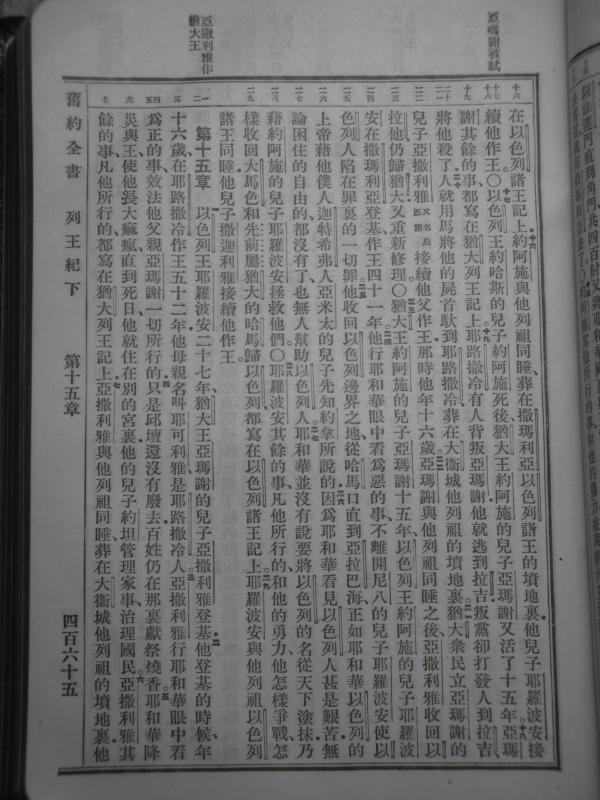 亞瑪謝被弒
在以色列諸王記上、約阿施與他列祖同睡、葬在撒瑪利亞以色列諸王的墳地裏、他兒子耶羅波安接
續他作王。〇以色列王約哈斯的兒子約阿施死後、猶大王約阿施的兒子亞瑪謝又活了十五年。亞瑪
謝其餘的事、都寫在猶大列王記上。耶路撒冷有人背叛亞瑪謝、他就逃到拉吉、叛黨卻打發人到拉吉
將他殺了。人就用馬將他的屍首馱到耶路撒冷、葬在大衞城他列祖的墳地裏。猶大衆民立亞瑪謝的
兒子亞撒利雅又名烏西雅接續他父作王、那時他年十六歲。亞瑪謝與他列祖同睡之後、亞撒利雅收回以
拉他仍歸猶大、又重新修理。〇猶大王約阿施的兒子亞瑪謝十五年、以色列王約阿施的兒子耶羅波
安在撒瑪利亞登基、作王四十一年。他行耶和華眼中看爲惡的事、不離開尼八的兒子耶羅波安使以
色列人陷在罪裏的一切罪。他收回以色列邊界之地、從哈馬口直到亞拉巴海、正如耶和華以色列的
上帝藉他僕人迦特希弗人亞米太的兒子先知約拿所說的。因爲耶和華看見以色列人甚是艱苦、無
論困住的、自由的都沒有了、也無人幫助以色列人。耶和華並沒有說要將以色列的名從天下塗抹、乃
藉約阿施的兒子耶羅波安拯救他們。〇耶羅波安其餘的事、凡他所行的、和他的勇力、他怎樣爭戰、怎
樣收回大馬色、和先前屬猶大的哈馬歸以色列、都寫在以色列諸王記上。耶羅波安與他列祖以色列
諸王同睡、他兒子撒迦利雅接續他作王。
亞撒利雅作猶大王
第十五章 以色列王耶羅波安二十七年、猶大王亞瑪謝的兒子亞撒利雅登基、他登基的時候、年
十六歲、在耶路撒冷作王五十二年、他母親名叫耶可利雅、是耶路撒冷人。亞撒利雅行耶和華眼中看
爲正的事、效法他父親亞瑪謝一切所行的、只是邱壇還沒有廢去、百姓仍在那裏獻祭燒香。耶和華降
災與王、使他長大痲瘋、直到死日、他就住在別的宮裏、他的兒子約坦管理家事、治理國民。亞撒利雅其
餘的事、凡他所行的、都寫在猶大列王記上。亞撒利雅與他列祖同睡、葬在大衞城他列祖的墳地裏、他
舊約全書 列王紀下 第十五章 四百六十五